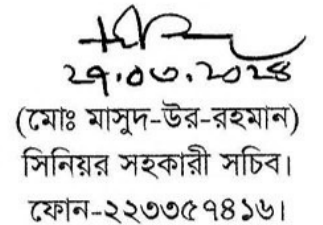 ২৭.০৩.২০২৪
(মোঃ মাসুদ-উর-রহমান)
সিনিয়র সহকারী সচিব।
ফোন-২২৩৩৫৭৪১৬।